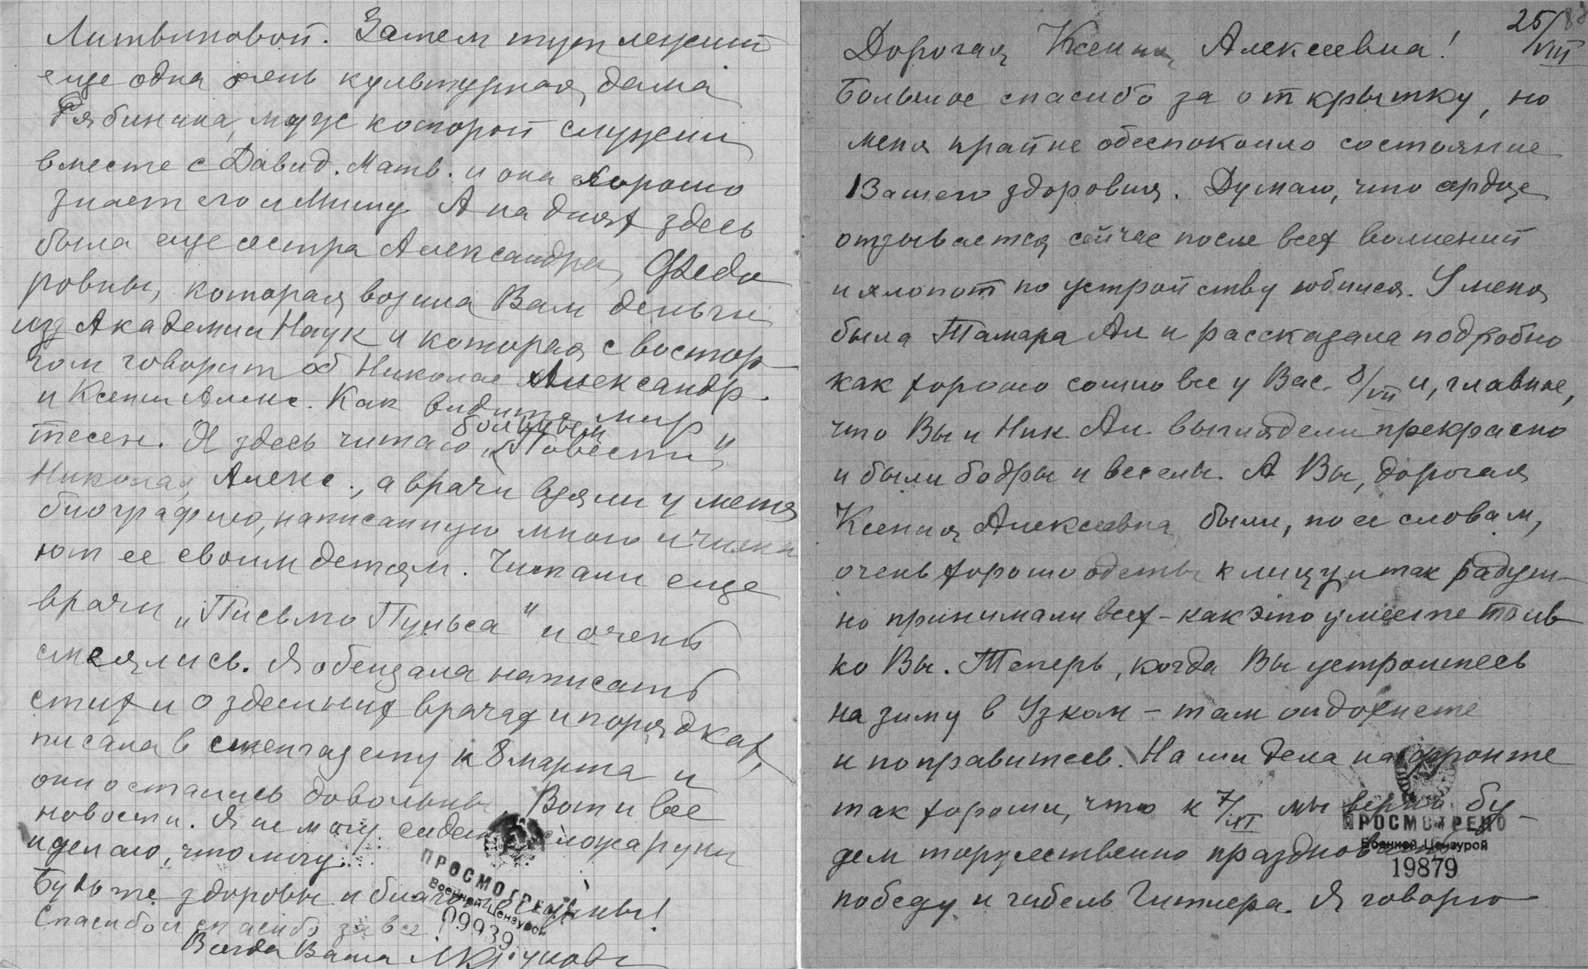 Литвиновой. Затем тут лежит
еще одна очень культурная дама
Рябинина, муж которой служил
вместе с Давид. Матв. и она хорошо
знает его и Миту А на днях здесь
была еще сестра Александры Федо
ровны, которая возила Вам деньги
из Академии Наук и которая с востор
гом говорит об Николае Александр.
и Ксении Алекс. Как видите мир
тесен. Я здесь читаю больным „Повести"
Николая Алекс., а врачи взяли у меня
биографию, написанную мною и чита
ют ее своим детям. Читали еще
врачи „Письмо Пульса" и очень
смеялись. Я обещала написать
стихи о здешних врачах и порядках,
писала в стенгазету к 8 марта и
они остались довольны. Вот и все
новости. Я не могу сидеть сложа руки
и делаю, что могу.
Будьте здоровы и
Спасибо и спасибо за все!
Всегда Ваша
ПРОСМОТРЕНО
Военной Цензурой
09939
25/VIII
Дорогая Ксения Алексеевна!
Большое спасибо за открытку, но
меня крайне обеспокоило состояние
Вашего здоровия. Думаю, что сердце
отзывается сейчас после всех волнений
и хлопот по устройству юбилея. У меня
была Тамара Ал и рассказала подробно
как хорошо сошло все у Вас 8/VII и, главное,
что Вы и Ник. Ал. выглядели прекрасно
и были бодры и веселы. А Вы, дорогая
Ксения Алексеевна были, по ее словам,
очень хорошо одеты к лицу и так радуш-
но принимали всех – как это умеете толь
ко Вы. Теперь, когда Вы устроитесь
на зиму в Узком – там отдохнете
и поправитесь. Наши дела на фронте
так хороши, что к 7/XI мы верно бу-
дем торжественно праздновать
победу и гибель Гитлера. Я говорю
ПРОСМОТРЕНО
Военной Цензурой
19879